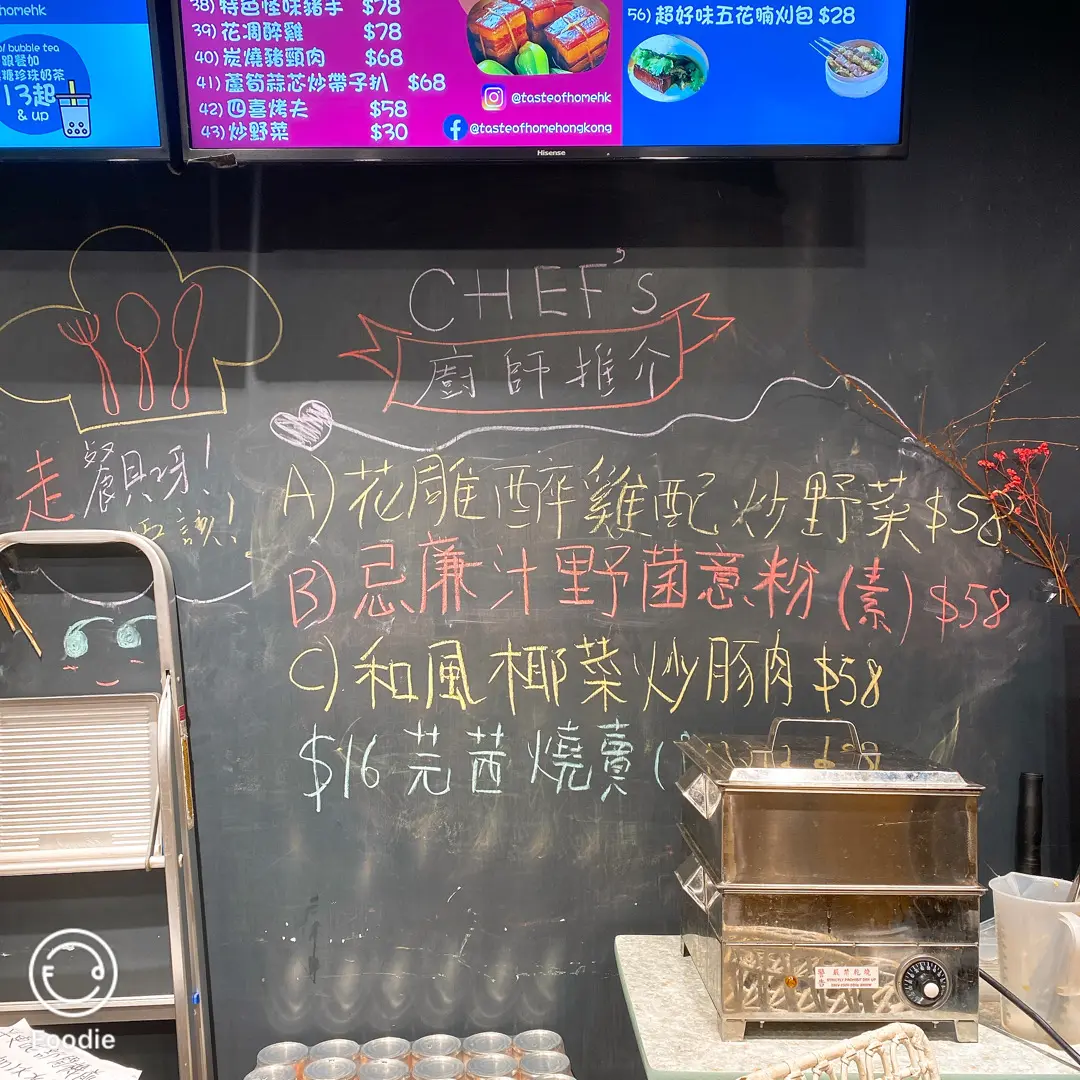 omehk
o/ bubble tea
跟餐加
糖珍珠奶茶
13起
& up
38) 特色怪味豬手 $78
39) 花凋醉雞 $78
40) 炭燒豬頸肉 $68
41) 蘆筍蒜芯炒帶子扒 $68
42) 四喜烤夫 $58
43) 炒野菜 $30
@tasteofhomehk
@tasteofhomehongkong
56) 超好味五花腩刈包 $28
Hisense
CHEF's
廚師推介
走
A) 花雕醉雞配炒野菜 $58
B) 忌廉汁野菌意粉 (素) $58
C) 和風椰菜炒豚肉 $58
$16 芫茜燒賣 (
嚴禁乾燒
Foodie